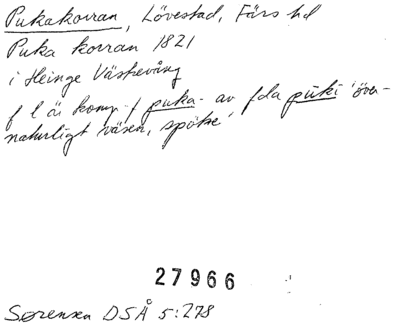 Pukakorran, Lövestad, Färs hd
Puka korran 1821
i Heinge Västervång
f l är komp. f puka- av fda puki 'över-
naturligt väsen, spöke'
27966
Sørensen DSÅ 5:278